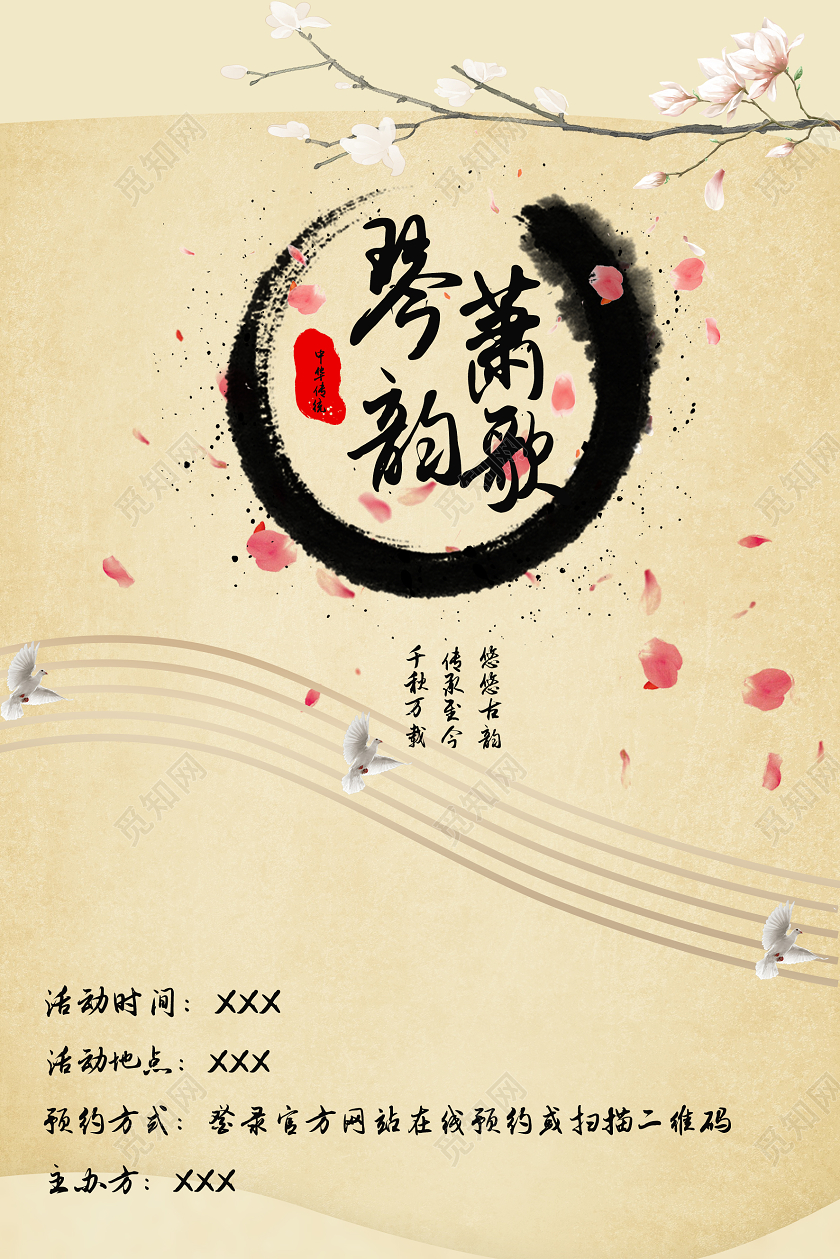 琴韵
萧歌
中华传统
悠悠古韵
传承至今
千秋万载
活动时间：XXX
活动地点：XXX
预约方式：登录官方网站在线预约或扫描二维码
主办方：XXX
觅知网